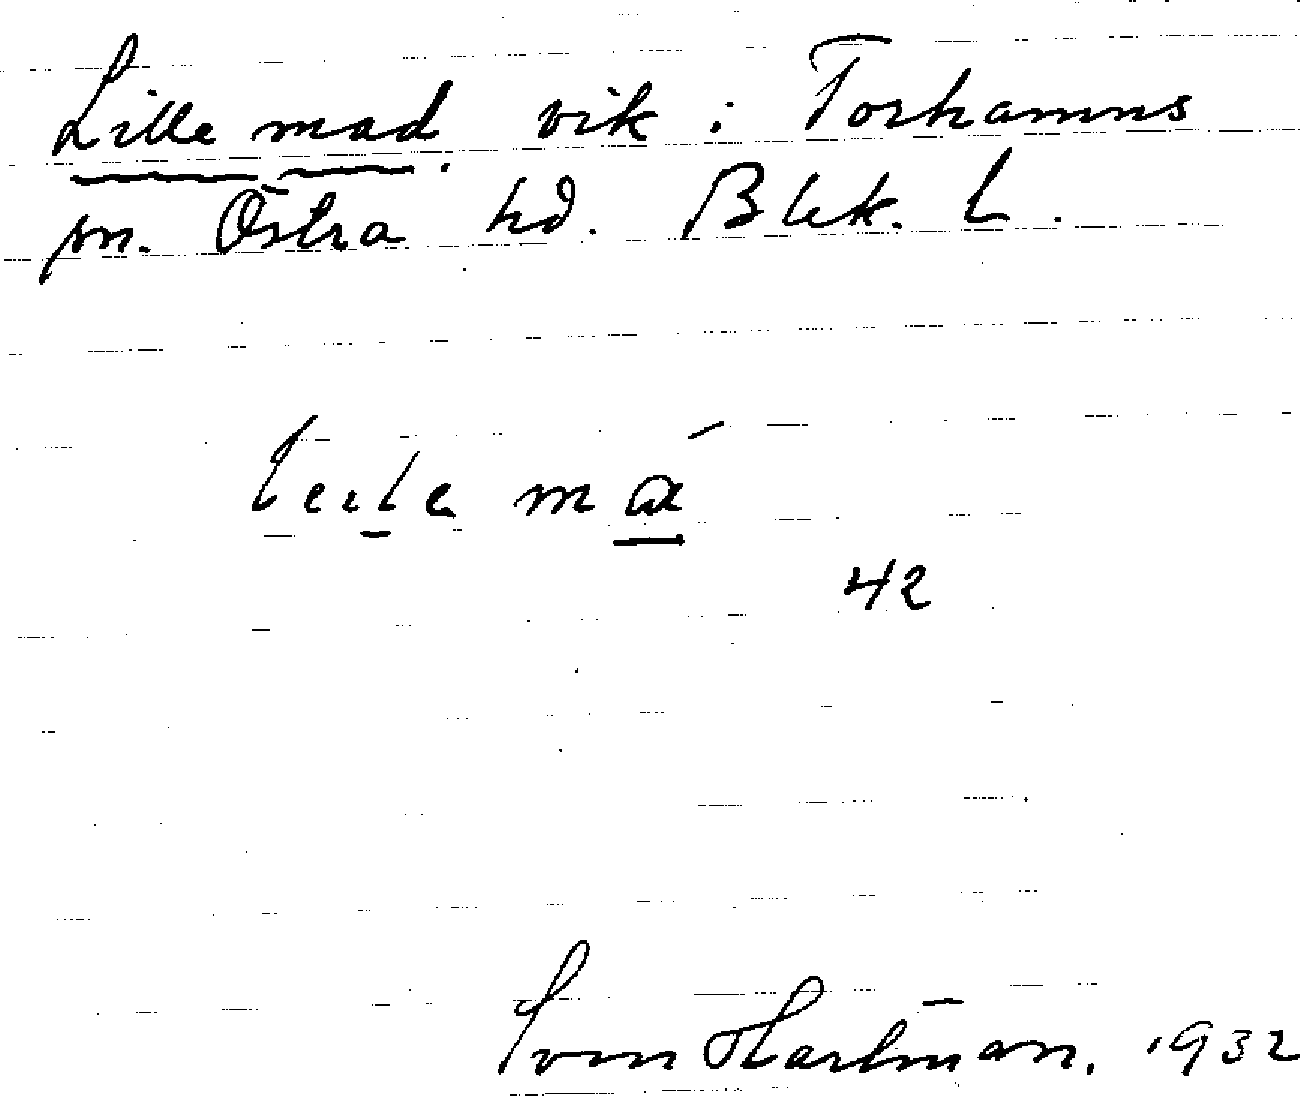 Lille mad, vik i Torhamns
sn. Östra hd. Blek. L.
42
Sven Hartman. 1932